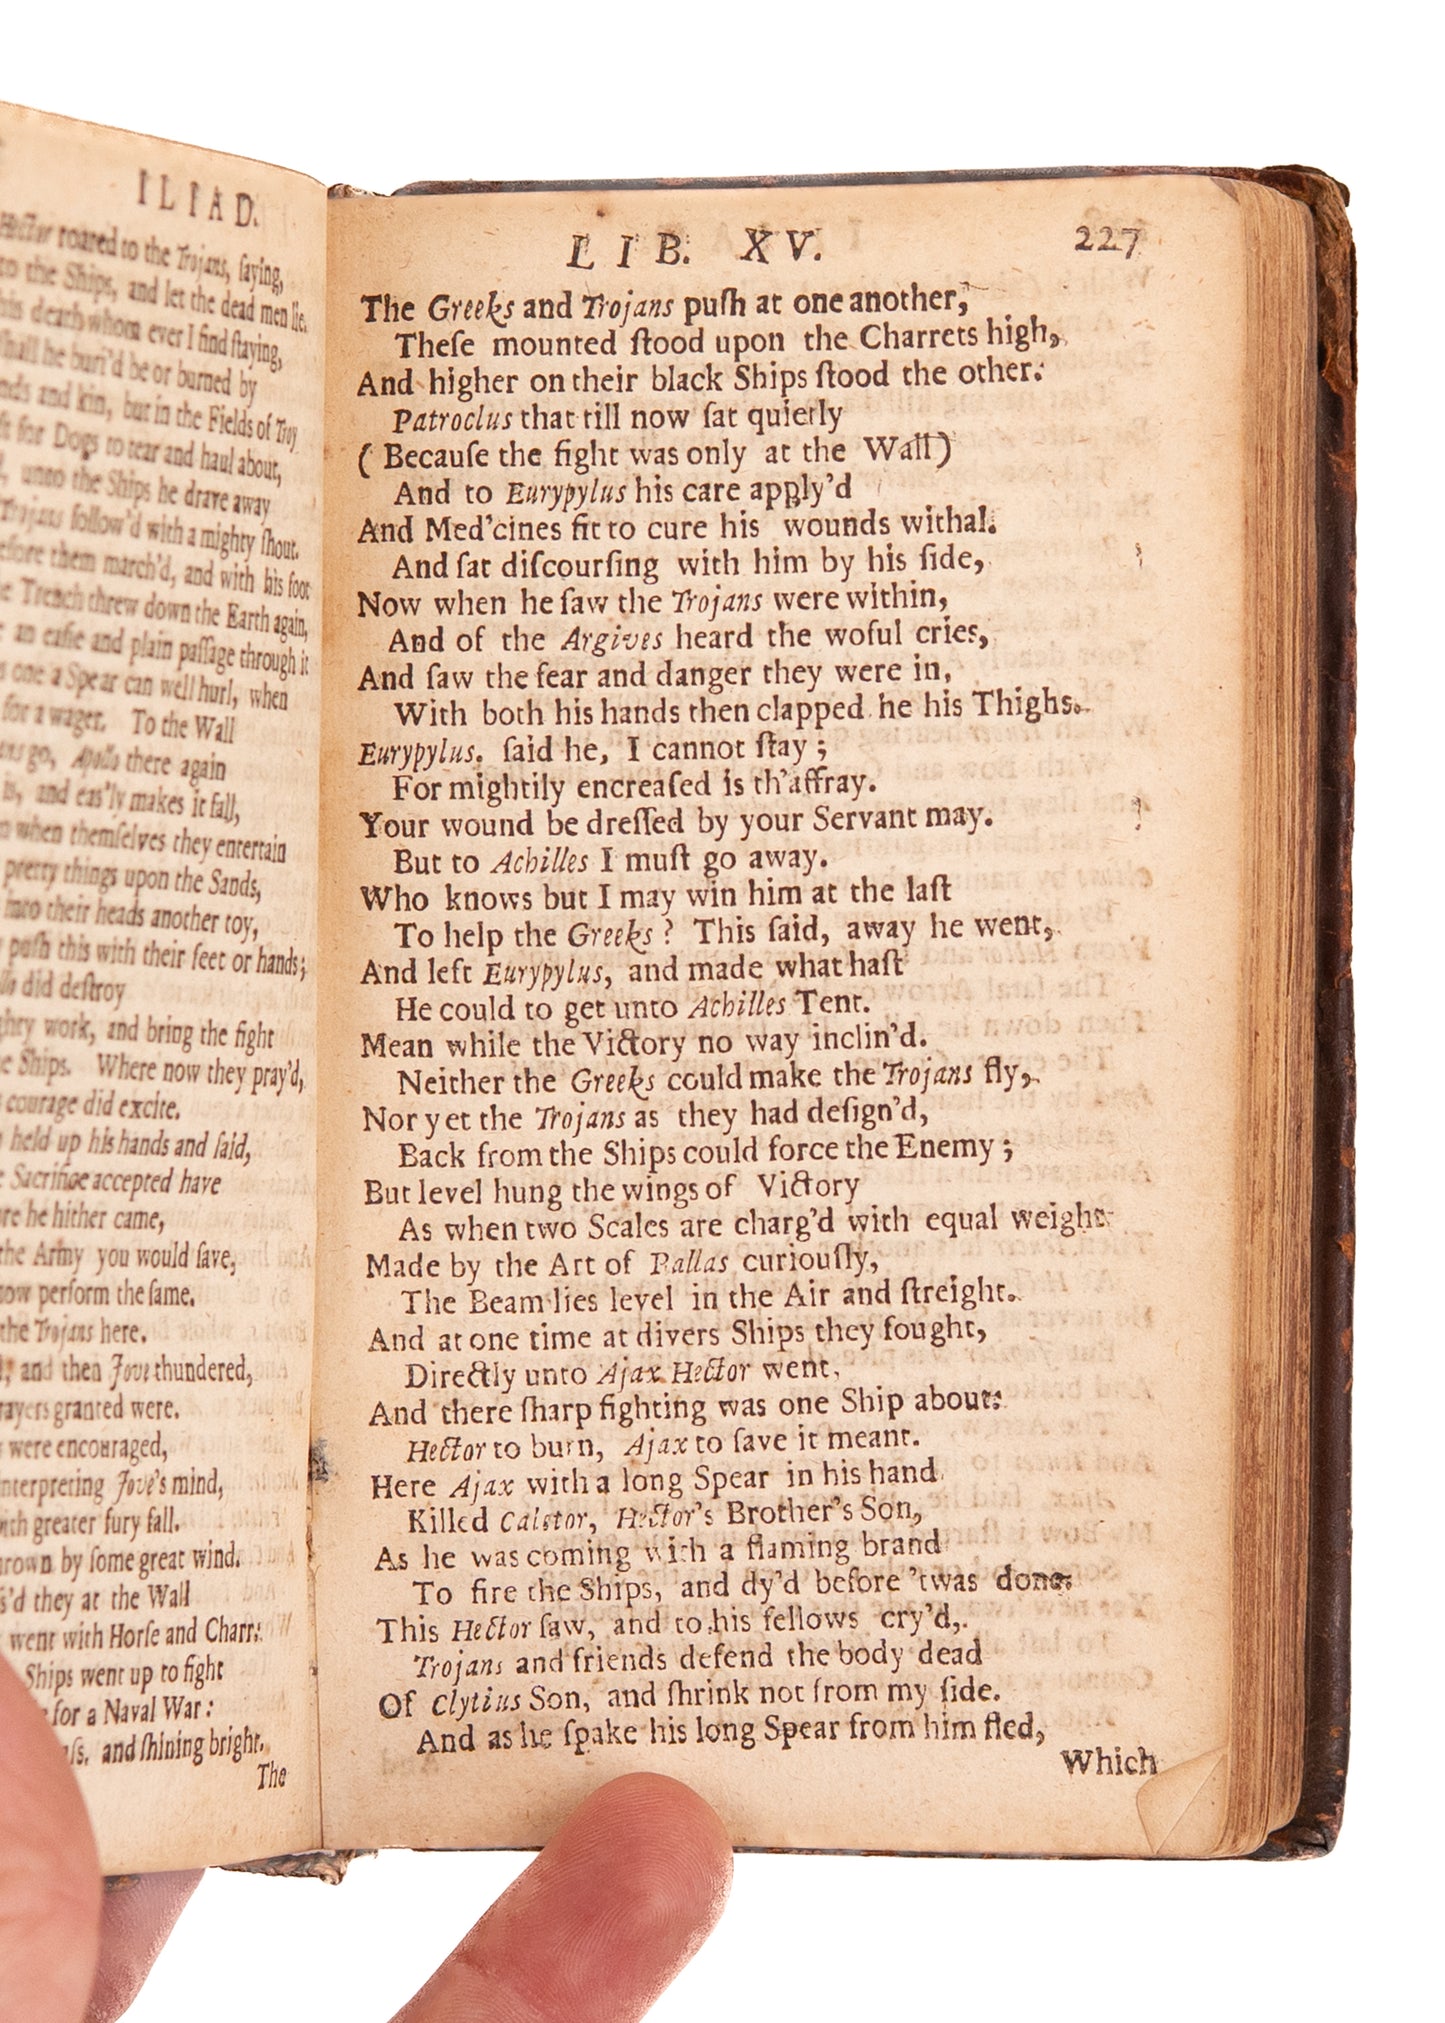 ILIAD.
Hector roared to the Trojans, ſaying,
to the Ships, and let the dead men lie.
his death whom ever I find ſtaying,
ſhall he buri'd be or burned by
and kin, but in the Fields of Troy
for Dogs to tear and haul about,
unto the Ships he drave away
Trojans follow'd with a mighty ſhout.
before them march'd, and with his foot
Trench threw down the Earth again,
an eaſie and plain paſſage through it
one a Spear can well hurl, when
for a wager. To the Wall
go, Apollo there again
is, and eas'ly makes it fall,
when themſelves they entertain
pretty things upon the Sands,
into their heads another toy,
puſh this with their feet or hands;
did deſtroy
work, and bring the fight
Ships. Where now they pray'd,
courage did excite.
held up his hands and ſaid,
Sacrifice accepted have
he hither came,
the Army you would ſave,
now perform the ſame.
the Trojans here.
and then Jove thundered,
granted were.
were encouraged,
interpreting Jove's mind,
with greater fury fall.
by ſome great wind.
they at the Wall
went with Horſe and Charr:
Ships went up to fight
for a Naval War:
and ſhining bright.
The
LIB. XV. 227
The Greeks and Trojans puſh at one another,
Theſe mounted ſtood upon the Charrets high,
And higher on their black Ships ſtood the other.
Patroclus that till now ſat quietly
( Becauſe the fight was only at the Wall)
And to Eurypylus his care apply'd
And Med'cines fit to cure his wounds withal.
And ſat diſcourſing with him by his ſide,
Now when he ſaw the Trojans were within,
And of the Argives heard the woful cries,
And ſaw the fear and danger they were in,
With both his hands then clapped he his Thighs.
Eurypylus. ſaid he, I cannot ſtay ;
For mightily encreaſed is th'affray.
Your wound be dreſſed by your Servant may.
But to Achilles I muſt go away.
Who knows but I may win him at the laſt
To help the Greeks ? This ſaid, away he went,
And left Eurypylus, and made what haſt
He could to get unto Achilles Tent.
Mean while the Victory no way inclin'd.
Neither the Greeks could make the Trojans fly,
Nor yet the Trojans as they had deſign'd,
Back from the Ships could force the Enemy ;
But level hung the wings of Victory
As when two Scales are charg'd with equal weight
Made by the Art of Pallas curiouſly,
The Beam lies level in the Air and ſtreight.
And at one time at divers Ships they fought,
Directly unto Ajax Hector went,
And there ſharp fighting was one Ship about:
Hector to burn, Ajax to ſave it meant.
Here Ajax with a long Spear in his hand
Killed Caletor, Hector's Brother's Son,
As he was coming with a flaming brand
To fire the Ships, and dy'd before 'twas done.
This Hector ſaw, and to his fellows cry'd,
Trojans and friends defend the body dead
Of Clytius Son, and ſhrink not from my ſide.
And as he ſpake his long Spear from him fled,
Which